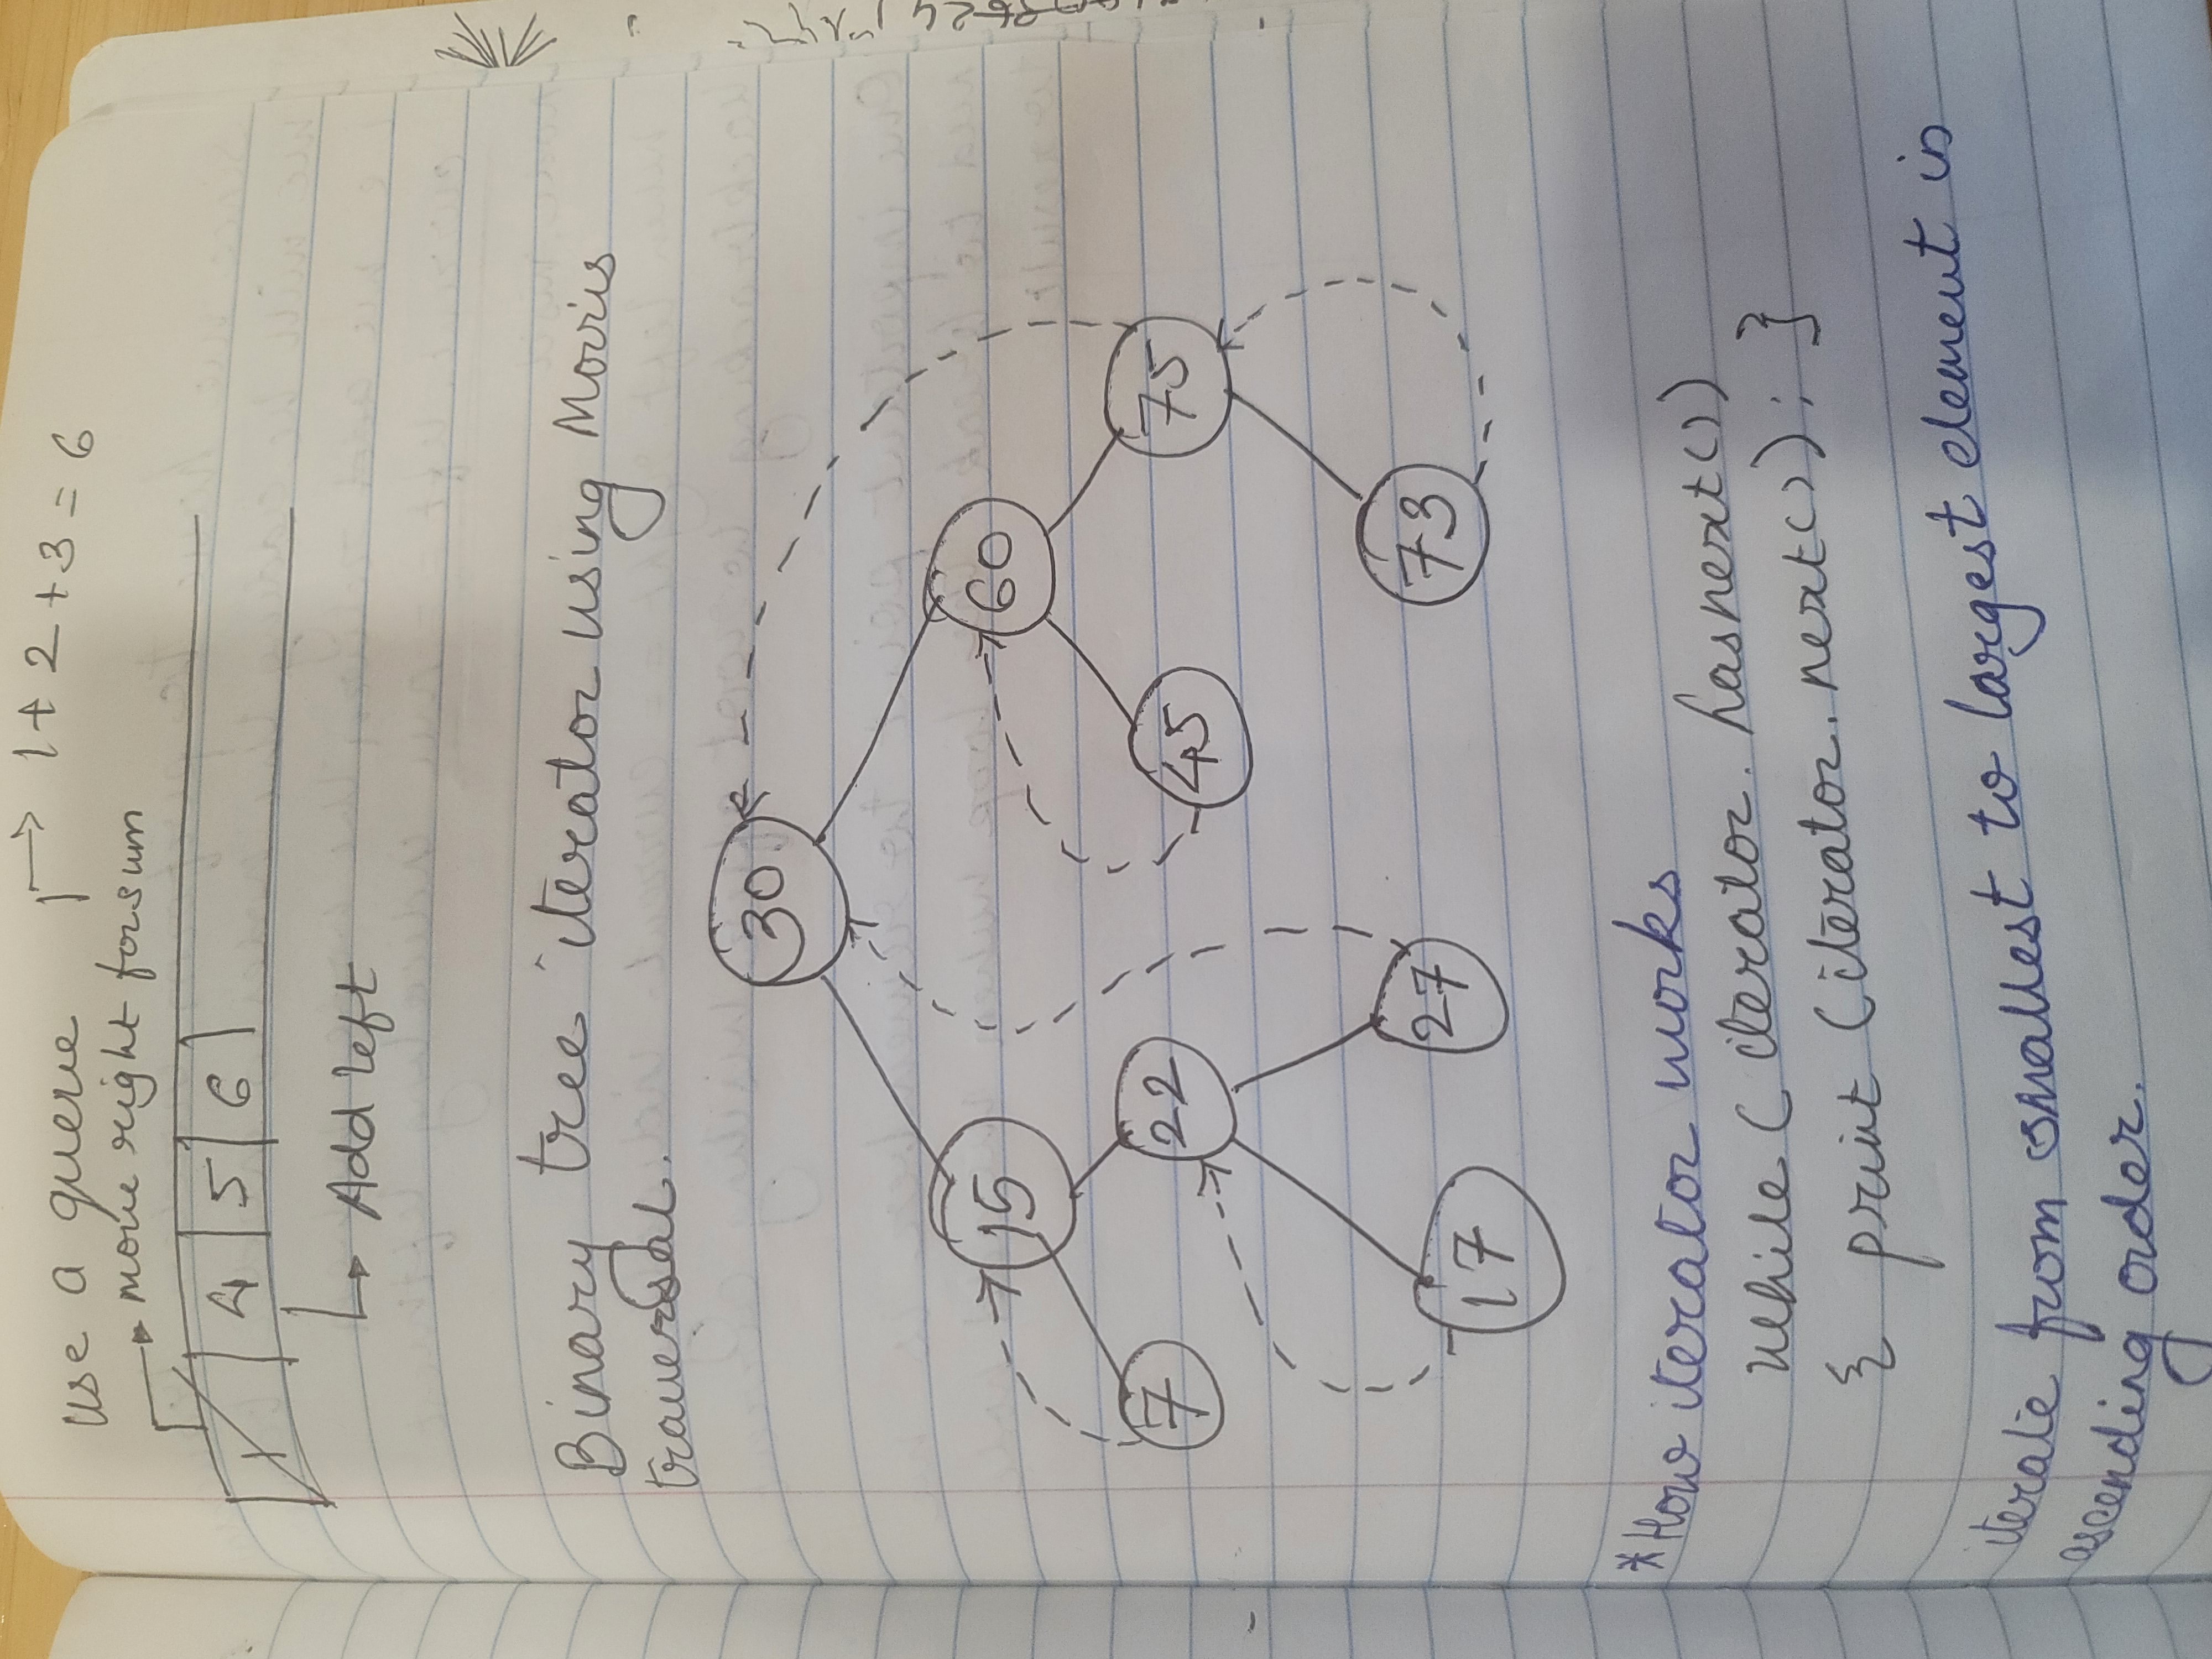 use a queue → 1 + 2 + 3 = 6
→ move right for sum
1 4 5 6
→ Add left
Binary tree iterator using Morris
traversal.
30
15 60
7 22 45 75
17 27 73
* How iterator works
while ( iterator. hasnext())
{ print (iterator. next()); }
iterate from smallest to largest element in
ascending order.